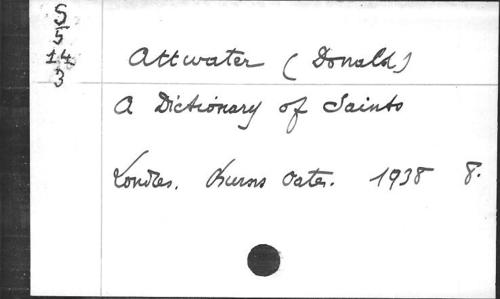 S
5
14
3
Attwater (Donald)
A Dictionary of Saints
Londres. Burns Oates. 1938 8.